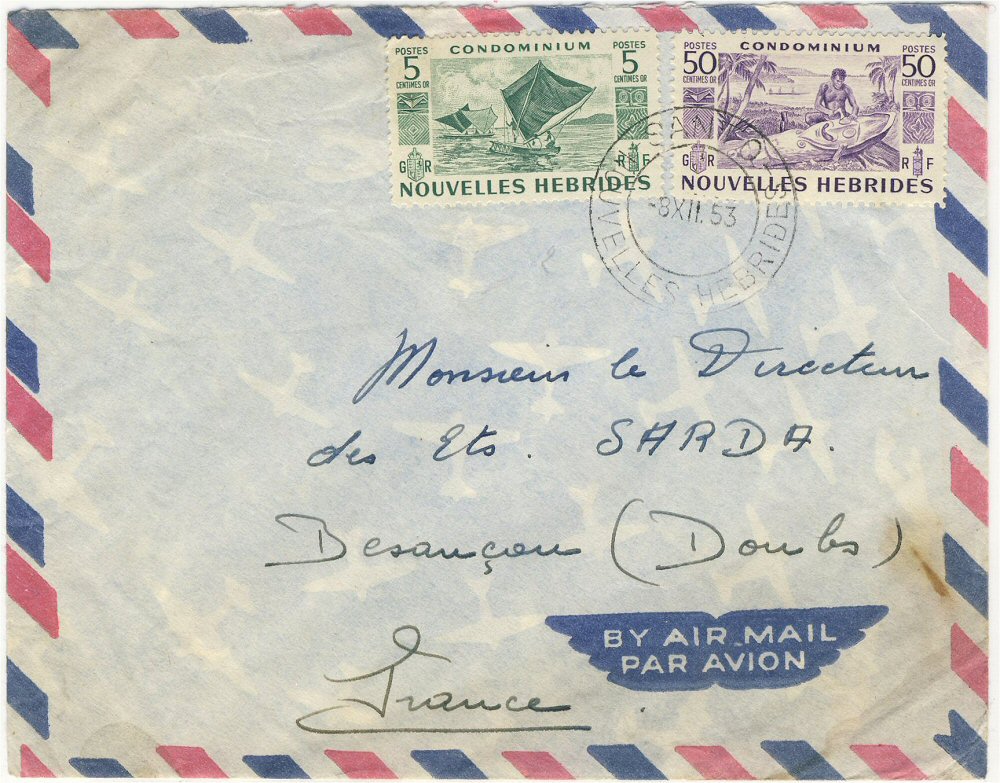 POSTES CONDOMINIUM POSTES
5 5
CENTIMES OR CENTIMES OR
G R R F
NOUVELLES HEBRIDES
POSTES CONDOMINIUM POSTES
50 50
CENTIMES OR CENTIMES OR
G R R F
NOUVELLES HEBRIDES
SANTO
-8 XII. 53
NOUVELLES HEBRIDES
Monsieur le Directeur
des Ets. SARDA.
Besançon (Doubs)
France
BY AIR MAIL
PAR AVION